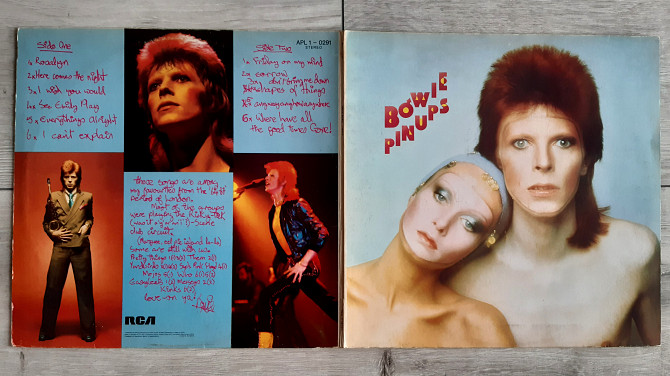 Side One
1x Rosalyn
2x Here comes the night
3x I wish you would
4x See Emily Play
5x Everythings Alright
6x I can't explain
APL 1 - 0291
STEREO
Side Two
1x Friday on my mind
2x Sorrow
3x don't bring me down
Shapes of things
anyway anyhow anywhere
6x Where have all
the good times Gone!
These songs are among
my favourites from the
period of London.
Most of the groups
were playing the
club circuit
Some are still with us
Pretty things Them
Pink Floyd
Mojos Who
Easybeats Merseys
Kinks
Love-on ya!
RCA
BOWIE
PINUPS